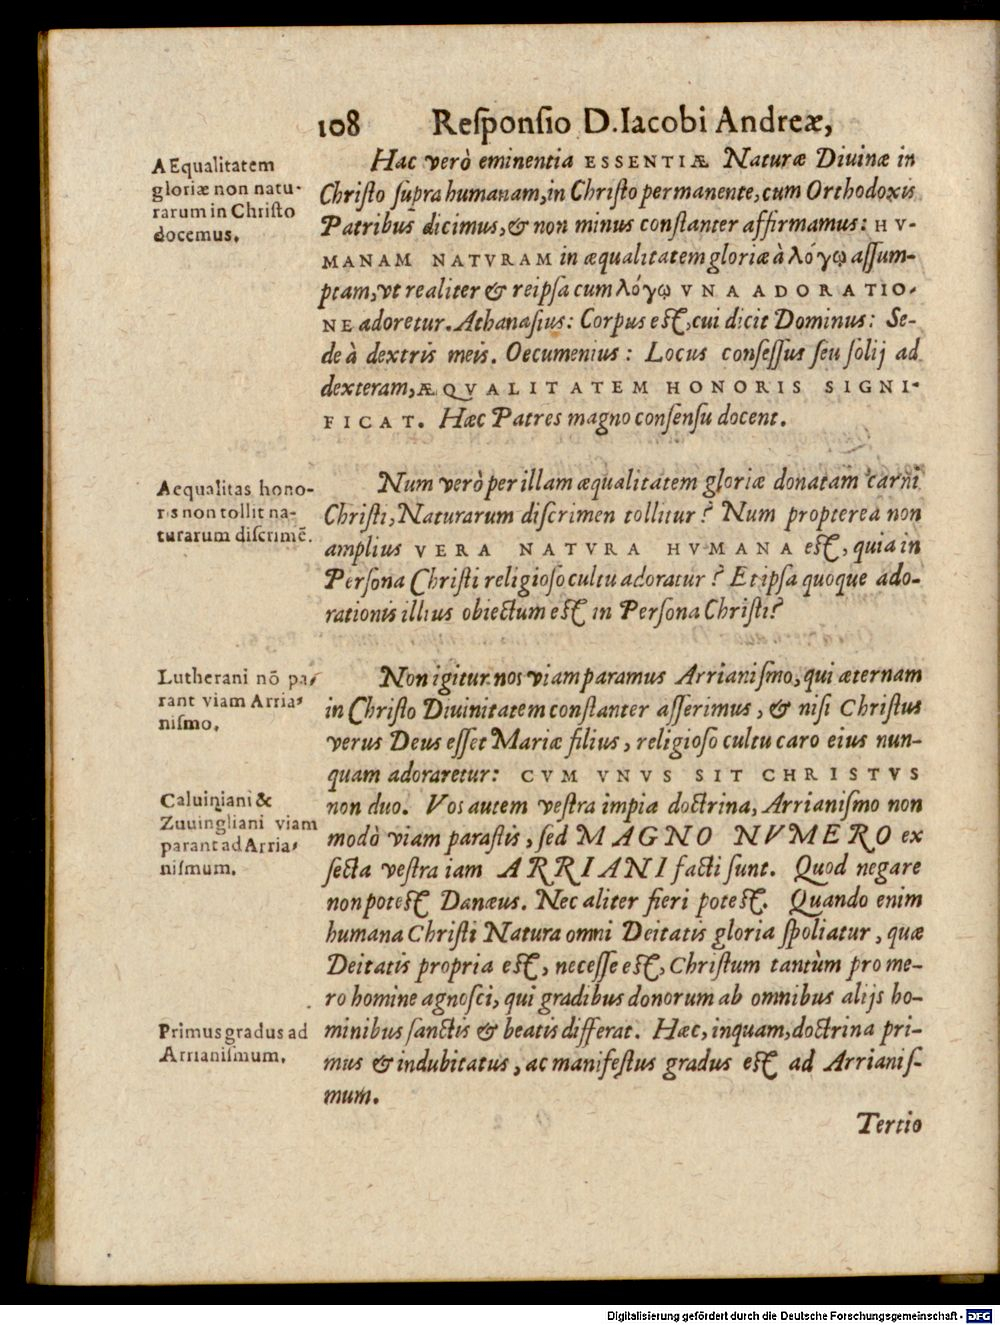 108 Reſponſio D. Iacobi Andreæ,
AEqualitatem
gloriæ non natu-
rarum in Chriſto
docemus.
Hac verò eminentia ESSENTIÆ Naturæ Diuinæ in
Chriſto ſupra humanam, in Chriſto permanente, cum Orthodoxis
Patribus dicimus, & non minus conſtanter affirmamus: HV-
MANAM NATVRAM in æqualitatem gloriæ à λόγῳ aſſum-
ptam, vt realiter & reipſa cum λόγῳ VNA ADORATIO-
NE adoretur. Athanaſius: Corpus eſt, cui dicit Dominus: Se-
de à dextris meis. Oecumenius: Locus conſeſſus ſeu ſolij ad
dexteram, ÆQVALITATEM HONORIS SIGNI-
FICAT. Hæc Patres magno conſenſu docent.
Aequalitas hono-
ris non tollit na-
turarum diſcrimẽ.
Num verò per illam æqualitatem gloriæ donatam carni
Chriſti, Naturarum diſcrimen tollitur? Num propterea non
amplius VERA NATVRA HVMANA eſt, quia in
Perſona Chriſti religioſo cultu adoratur? Et ipſa quoque ado-
rationis illius obiectum eſt in Perſona Chriſti?
Lutherani nõ pa-
rant viam Arria-
niſmo.
Non igitur nos viam paramus Arrianiſmo, qui æternam
in Chriſto Diuinitatem conſtanter aſſerimus, & niſi Chriſtus
verus Deus eſſet Mariæ filius, religioſo cultu caro eius nun-
quam adoraretur: CVM VNVS SIT CHRISTVS
Caluiniani &
Zuuingliani viam
parant ad Arria-
niſmum.
non duo. Vos autem veſtra impia doctrina, Arrianiſmo non
modò viam paraſtis, ſed MAGNO NVMERO ex
ſecta veſtra iam ARRIANI facti ſunt. Quod negare
non poteſt Danæus. Nec aliter fieri poteſt. Quando enim
humana Chriſti Natura omni Deitatis gloria ſpoliatur, quæ
Deitatis propria eſt, neceſſe eſt, Chriſtum tantùm pro me-
ro homine agnoſci, qui gradibus donorum ab omnibus alijs ho-
Primus gradus ad
Arrianiſmum.
minibus ſanctis & beatis differat. Hæc, inquam, doctrina pri-
mus & indubitatus, ac manifeſtus gradus eſt ad Arrianiſ-
mum.
Tertio
Digitalisierung gefördert durch die Deutsche Forschungsgemeinschaft - DFG